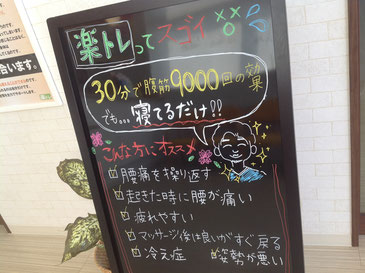 楽トレってスゴイ
30分で腹筋9000回の効果
でも…寝てるだけ!!
こんな方にオススメ
腰痛を繰り返す
起きた時に腰が痛い
疲れやすい
マッサージ後は良いがすぐ戻る
冷え症 姿勢が悪い
合います。